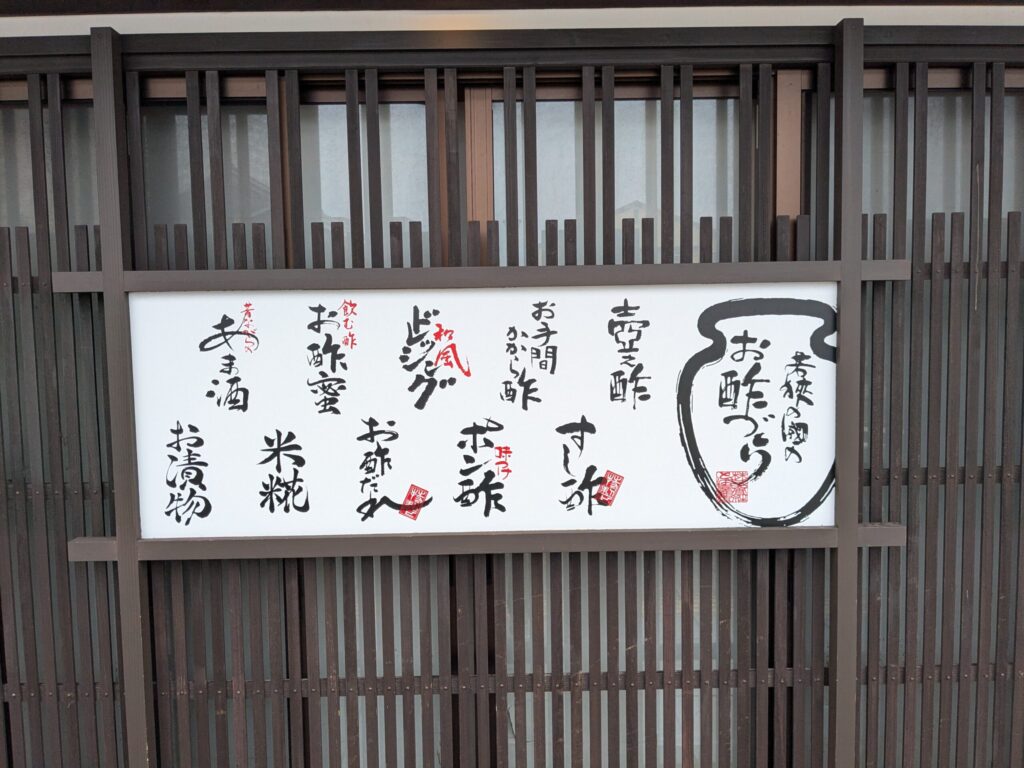 若狭の國の
お酢づくり
壺之酢
お手間
かから酢
和風
ドレッシング
飲む酢
お酢蜜
昔ながらの
あま酒
すし酢
ポン酢
お酢だれ
米糀
お漬物